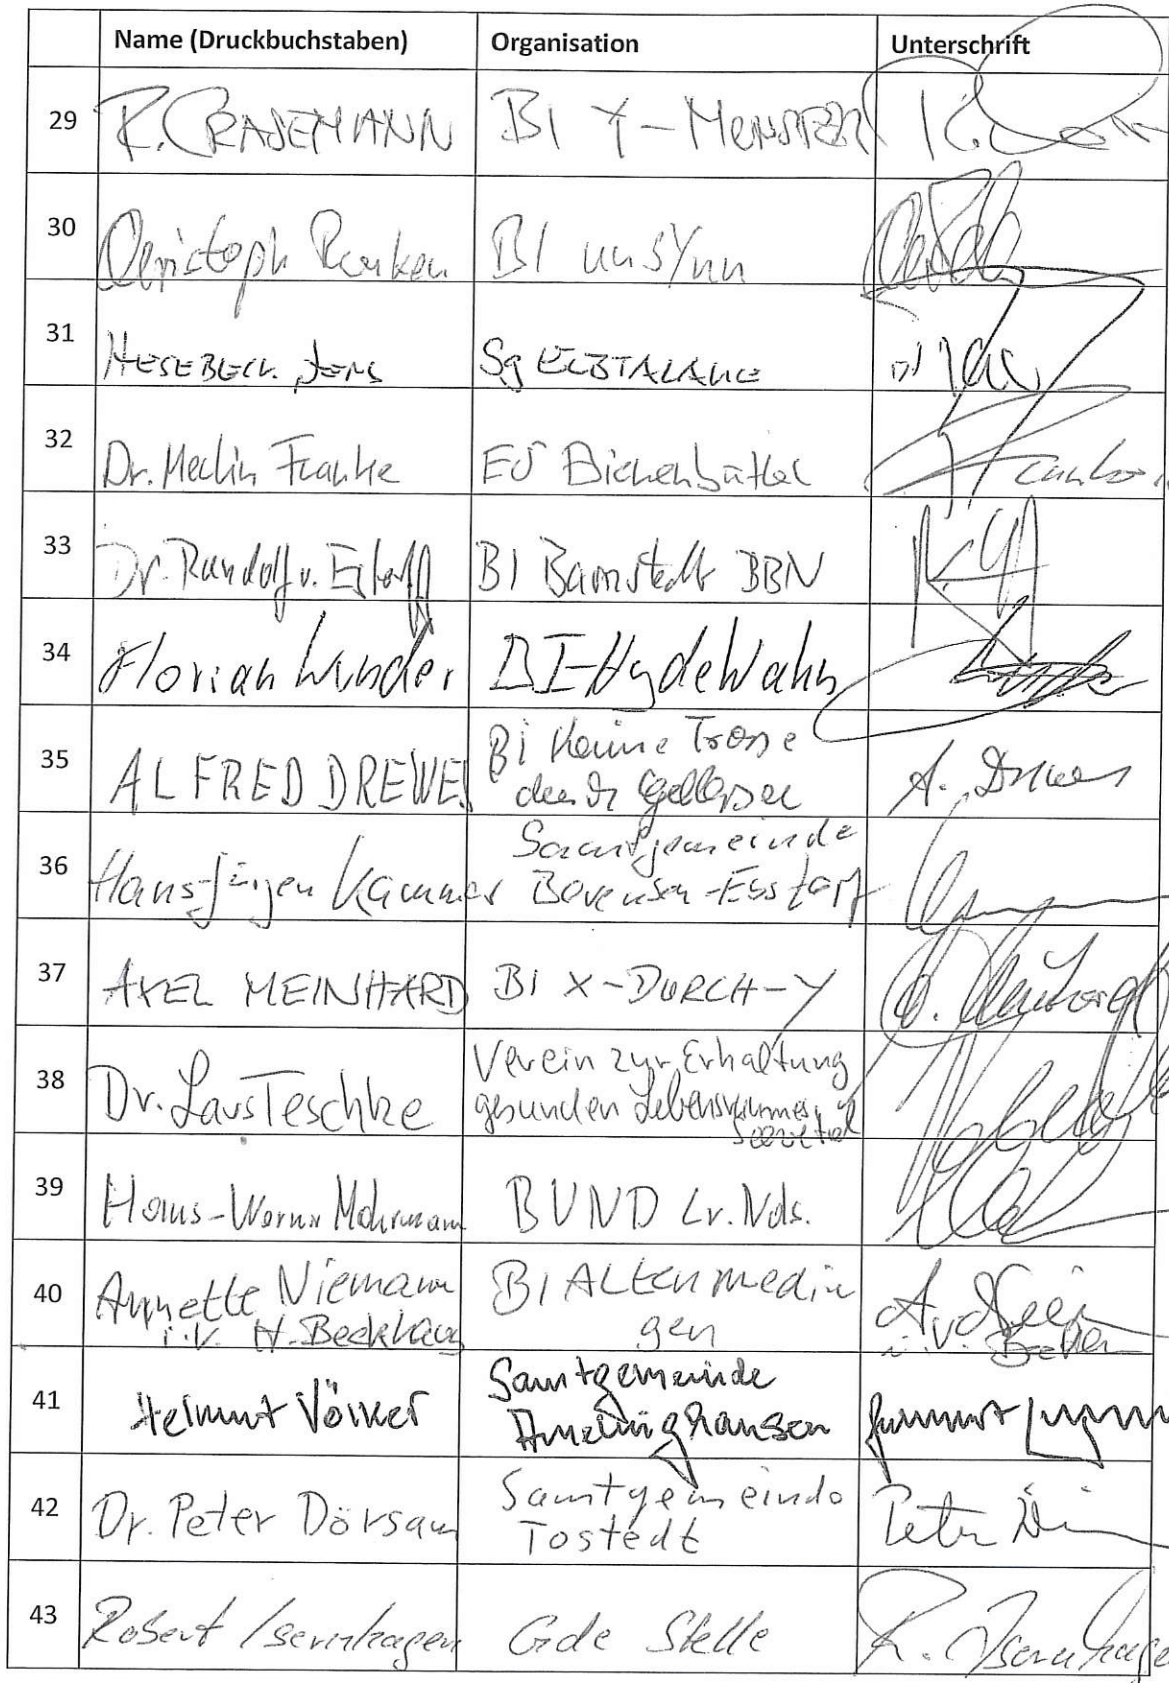 Name (Druckbuchstaben) Organisation Unterschrift
29 R. CRASEMANN BI Y-MONSTER
30 Christoph BI unsYnn
31 HESEBECK, JENS Sg ELBTALAUE
32 Dr. Merlin Franke EÖ Bienenbüttel
33 Dr. Randolf v. Estorff BI Barnstedt BBN
34 Florian Wunder BI-HydeWahn
35 ALFRED DREWES BI Keine Trasse
durch Gellersen A. Drewes
36 Hans-Jürgen Kammer Samtgemeinde
Bevensen-Ebstorf
37 AXEL MEINHARD BI X-DURCH-Y
38 Dr. Lars Teschke Verein zur Erhaltung
gesunden Lebensraumes,
39 Hans-Werner Mohrmann BUND Lv. Nds.
40 Annette Niemann BI Altenmedin
i.V. H. Beckhaus gen i.V.
41 Helmut Völker Samtgemeinde
Amelinghausen
42 Dr. Peter Dörsam Samtgemeinde
Tostedt Peter
43 Robert Isernhagen Gde Stelle R. Isernhagen